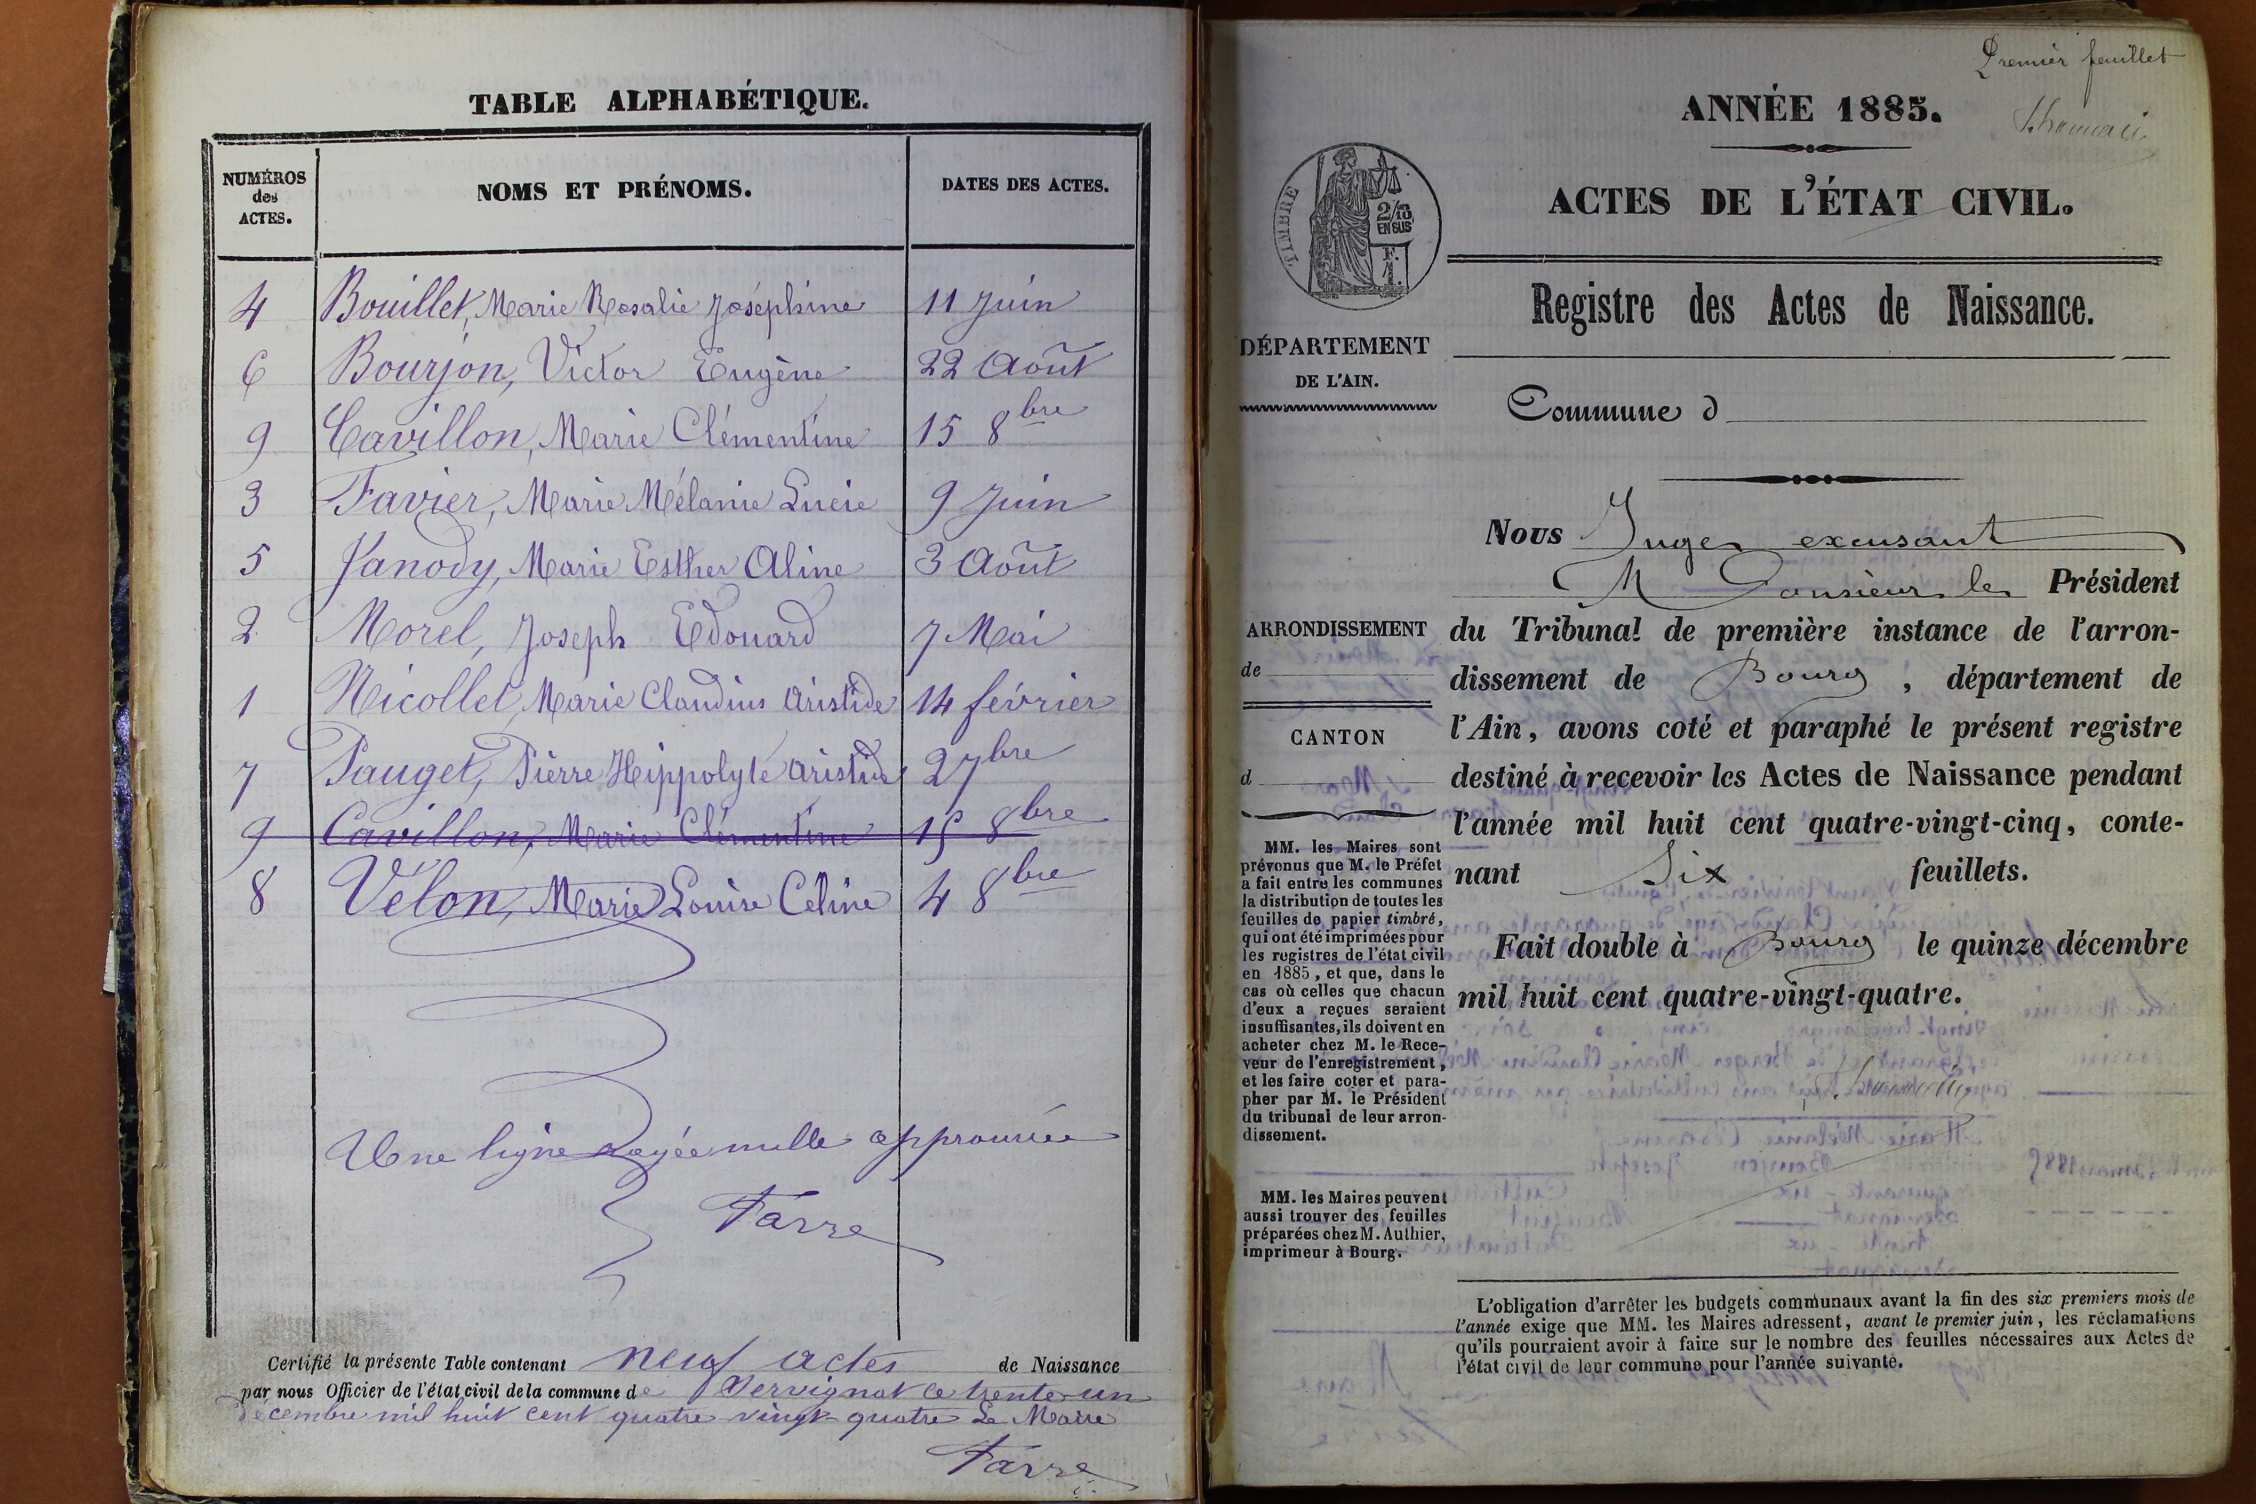 TABLE ALPHABÉTIQUE.
NUMÉROS des ACTES. NOMS ET PRÉNOMS. DATES DES ACTES.
4 Bouillet, Marie Rosalie Joséphine 11 Juin
6 Bourjon, Victor Eugène 22 Août
9 Cavillon, Marie Clémentine 15 8bre
3 Favier, Marie Mélanie Lucie 9 Juin
5 Janody, Marie Esther Aline 3 Août
2 Morel, Joseph Edouard 7 Mai
1 Nicollet, Marie Claudius Aristide 14 février
7 Pauget, Pierre Hippolyte Aristide 2 7bre
9 Cavillon, Marie Clémentine 15 8bre
8 Vélon, Marie Louise Céline 4 8bre
Une ligne rayée nulle approuvée
Farre
Certifié la présente Table contenant neuf actes de Naissance
par nous Officier de l'état civil de la commune de Servignat ce trente-un
décembre mil huit cent quatre-vingt-quatre Le Maire
Farre
Premier feuillet
ANNÉE 1885.
ACTES DE L'ÉTAT CIVIL.
TIMBRE
2/10
EN SUS
F.
1.
Registre des Actes de Naissance.
DÉPARTEMENT
DE L'AIN.
Commune d
Nous Juge excusant
Monsieur le Président
du Tribunal de première instance de l'arron-
dissement de Bourg, département de
l'Ain, avons coté et paraphé le présent registre
destiné à recevoir les Actes de Naissance pendant
l'année mil huit cent quatre-vingt-cinq, conte-
nant Six feuillets.
Fait double à Bourg le quinze décembre
mil huit cent quatre-vingt-quatre.
ARRONDISSEMENT
de
CANTON
d
MM. les Maires sont
prévenus que M. le Préfet
a fait entre les communes
la distribution de toutes les
feuilles de papier timbré,
qui ont été imprimées pour
les registres de l'état civil
en 1885, et que, dans le
cas où celles que chacun
d'eux a reçues seraient
insuffisantes, ils doivent en
acheter chez M. le Rece-
veur de l'enregistrement,
et les faire coter et para-
pher par M. le Président
du tribunal de leur arron-
dissement.
MM. les Maires peuvent
aussi trouver des feuilles
préparées chez M. Authier,
imprimeur à Bourg.
L'obligation d'arrêter les budgets communaux avant la fin des six premiers mois de
l'année exige que MM. les Maires adressent, avant le premier juin, les réclamations
qu'ils pourraient avoir à faire sur le nombre des feuilles nécessaires aux Actes de
l'état civil de leur commune pour l'année suivante.